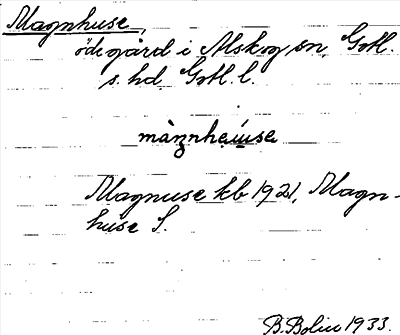 Magnhuse,
ödegård i Alskog sn, Gotl.
s. hd Gotl. l.
màŋnhẹu̇sa
Magnuse kb 1921, Magn-
huse S.
B. Bolin 1933.